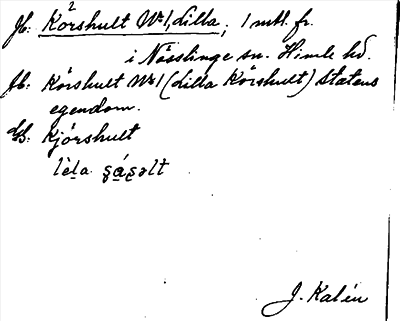 Jb: Körshult Nr 1, Lilla; 1 mtl. fr.
i Nösslinge sn. Himle hd.
Jb: Körshult Nr 1 (Lilla Körshult) Statens
egendom.
GS: Kjörshult
J. Kalén